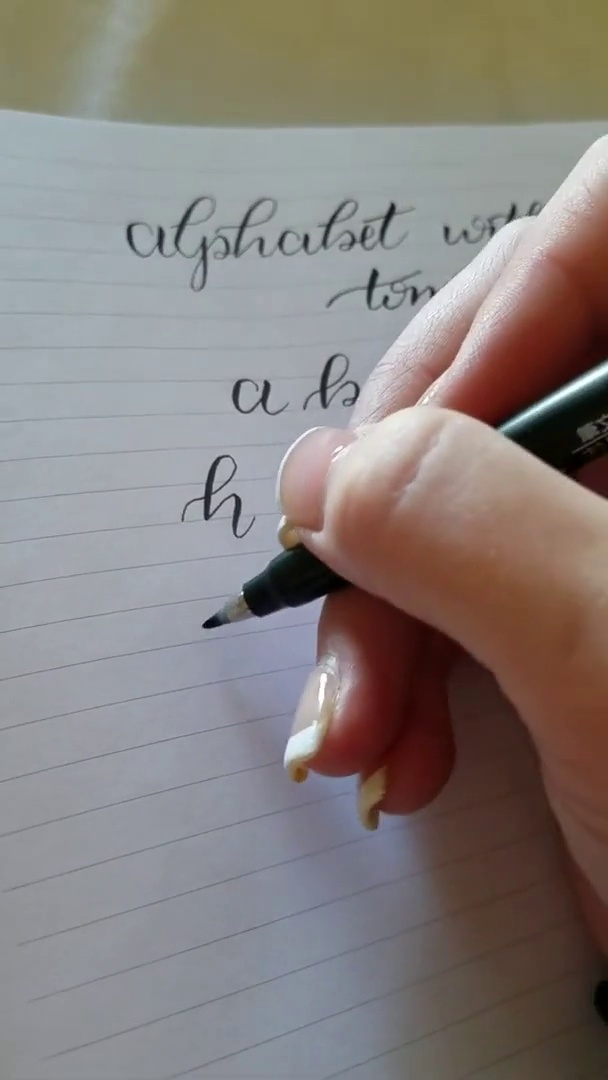 alphabet with
tom
a b
h